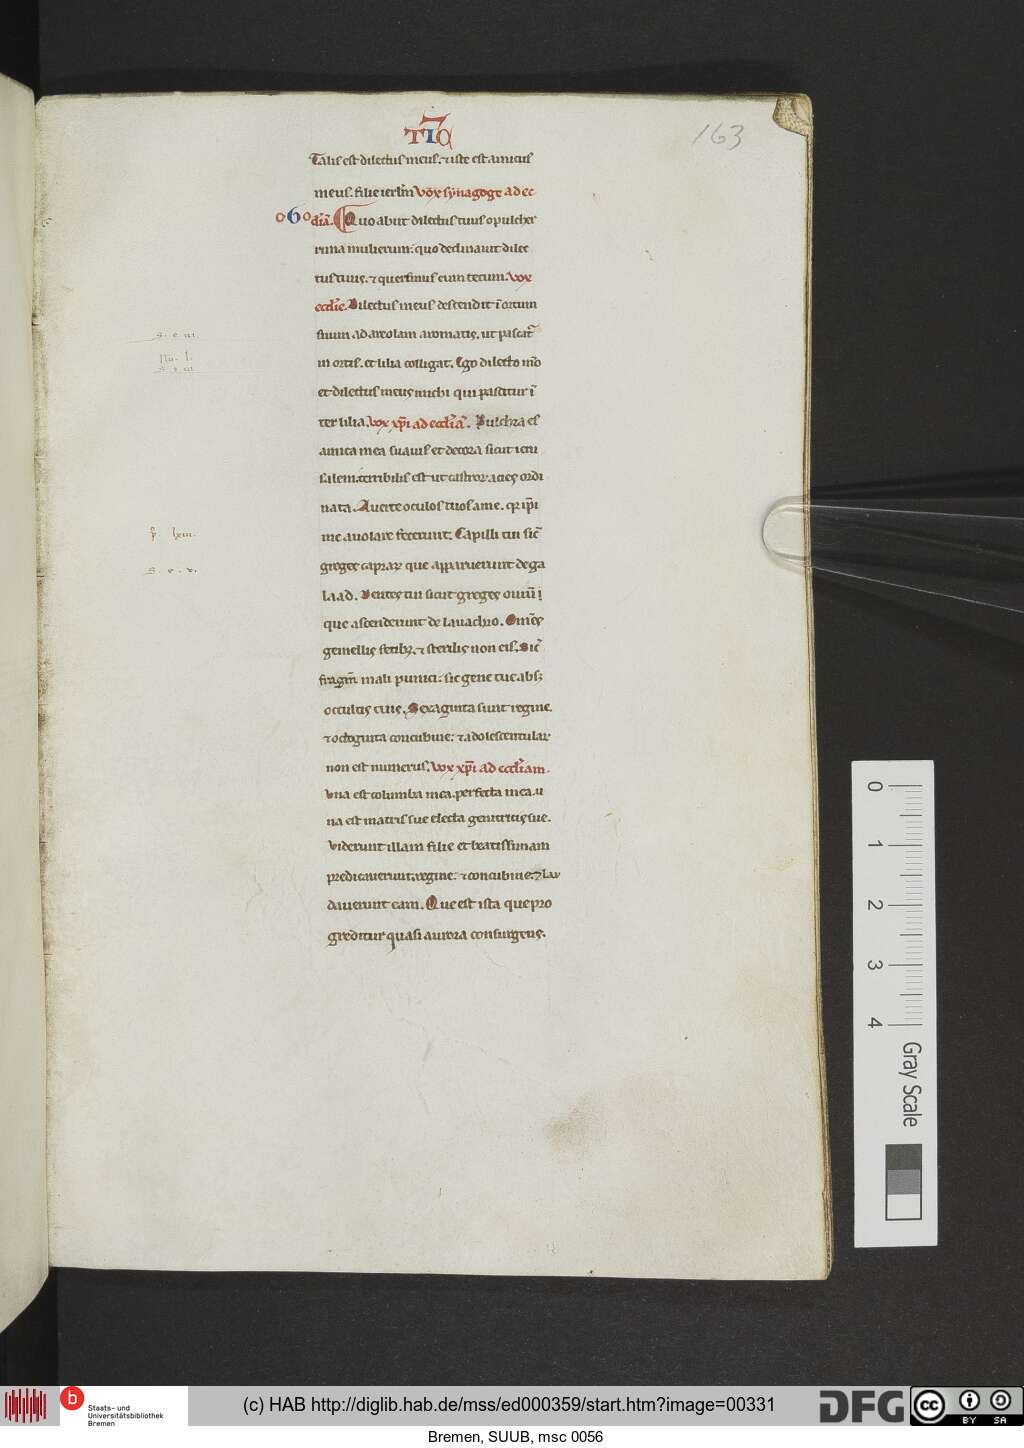 TICA
163
Talis est dilectus meus. ⁊ iste est amicus
meus. filie ierl̄m Vox synagoge ad ec
6 cl̄iā. Quo abiit dilectus tuus o pulcher
rima mulierum: quo declinauit dilec
tus tuus. ⁊ queremus eum tecum. Vox
eccl̄ie. Dilectus meus descendit ī ortum
suum ad areolam aromatis. ut pascat̄
in ortis. et lilia colligat. Ego dilecto m̄o
et dilectus meus michi qui pascitur ī
ter lilia. Vox xp̄i ad eccl̄iā. Pulchra es
amica mea suauis et decora sicut ieru
salem. terribilis est ut castror acies ordi
nata. Auerte oculos tuos a me. qr ip̄i
me auolare fecerunt. Capilli tui sic̄
greges caprar que apparuerunt de ga
laad. Dentes tui sicut greges ouiū
que ascenderunt de lauachro. Om̄es
gemellis fetibꝫ. ⁊ sterilis non eis. Sic̄
fragm̄ mali punici: sic gene tue absqꝫ
occultis tuis. Sexaginta sunt regine.
⁊ octoginta concubine: ⁊ adolescentular
non est numerus. Vox xp̄i ad eccl̄iam.
Vna est columba mea. perfecta mea. u
na est matris sue electa genitricis sue.
Viderunt illam filie et beatissimam
predicauerunt. regine: ⁊ concubine. ⁊ lau
dauerunt eam. Que est ista que pro
greditur quasi aurora consurgens.
S. e. iii.
No. l.
S. e. iii.
lxiii.
S. e. v.
0 1 2 3 4
Gray Scale
b
Staats- und
Universitätsbibliothek
Bremen
(c) HAB http://diglib.hab.de/mss/ed000359/start.htm?image=00331
DFG
cc BY SA
Bremen, SUUB, msc 0056